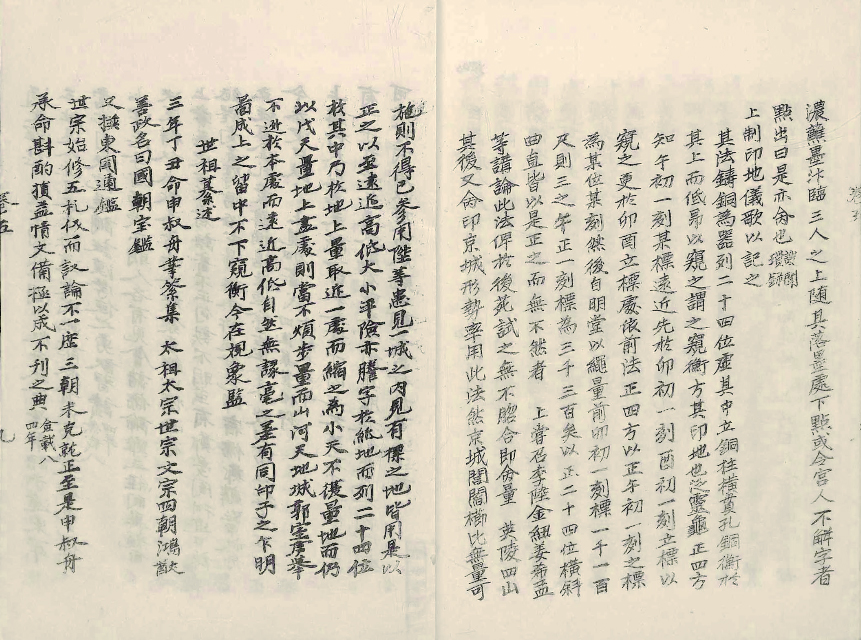 濃蘸墨汁臨三人之上隨其落墨處下點或令宮人不解字者
點出曰是亦命也
上制印地儀歌以記之
其法鑄銅爲器列二十四位虛其中立銅柱橫貫孔銅衡於
其上而低昻以窺之謂之窺衡方其印地也泛靈龜正四方
知午初一刻某標遠近先於卯初一刻酉初一刻立標以
窺之更於卯酉立標處依前法正四方以正午初一刻之標
爲其位某刻然後自明堂以繩量前卯初一刻標一千一百
尺則三之午正一刻標爲三千三百矣以正二十四位橫斜
曲直皆以是正之而無不然者 上嘗召李陸金紐姜希孟
等講論此法俾於後苑試之無不脗合卽命量 英陵四山
其後又命印京城形勢率用此法然京城閭閻櫛比無量可
施則不得已參用陞等患見一城之內見有標之地皆用是以
正之以至遠近高低大小平險亦謄字於紙地而列二十四位
於其中乃於地上量取近一處而縮之爲小天不復量地而仍
以戊天量地上畫處則當不煩步量而山河天地城郭室屋擧
不逃於本處而遠近高低自然無謬毫之差有同印子之乍明
啚成上之留中不下窺衡今在視象監
世祖纂述
三年丁丑命申叔舟等纂集 太祖太宗世宗文宗四朝鴻猷
善政名曰國朝宝鑑
又撰東國通鑑
世宗始修五礼儀而議論不一歷三朝未克就正至是申叔舟
承命斟酌損益情文備極以成不刊之典
卷五
九